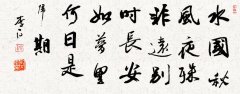 水國秋
風夜殊
非遠別
時長安
如夢里
何日是
歸期